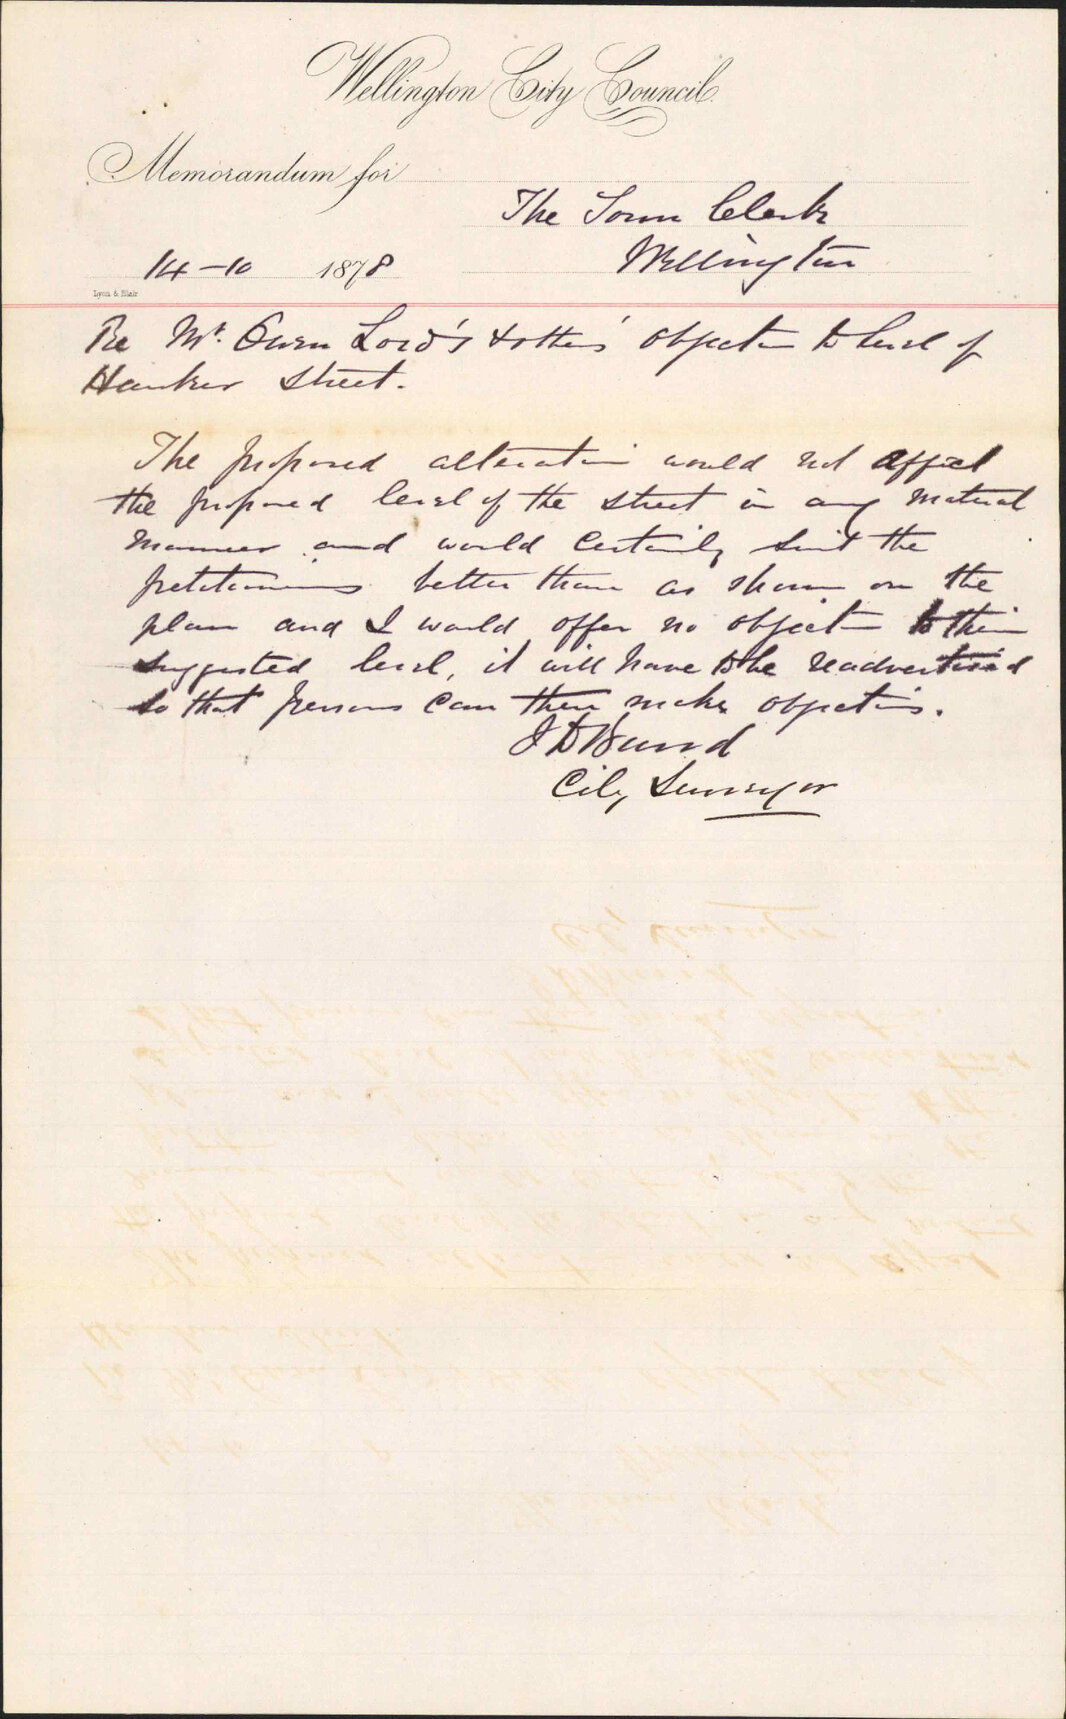 Wellington City Council.
Memorandum for
The Town Clerk
Wellington
14-10 1878
Lyon & Blair
Re Mr. Owen Lord's & others' objection to level of
Hawker Street.
The proposed alteration would not affect
the proposed level of the street in any material
manner and would certainly suit the
petitioners better than as shown on the
plan and I would offer no objection to their
suggested level, it will have to be readvertised
so that persons can then make objections.
J D Baird
City Surveyor